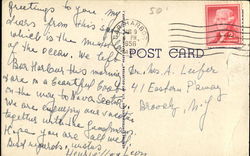 50¢
Greetings to you my
dears from this spot
which is the midst
of the ocean. We left
Bar Harbour this morning
are on a beautiful boat
on the way to Nova Scotia.
We are enjoying our vacation
together with the
Hope you are all well
Best regards,
BAR HARBOR
1956
POST CARD
Dr. Mrs. A. Leifer
41 Eastern Parkway
Brooklyn, N.Y.